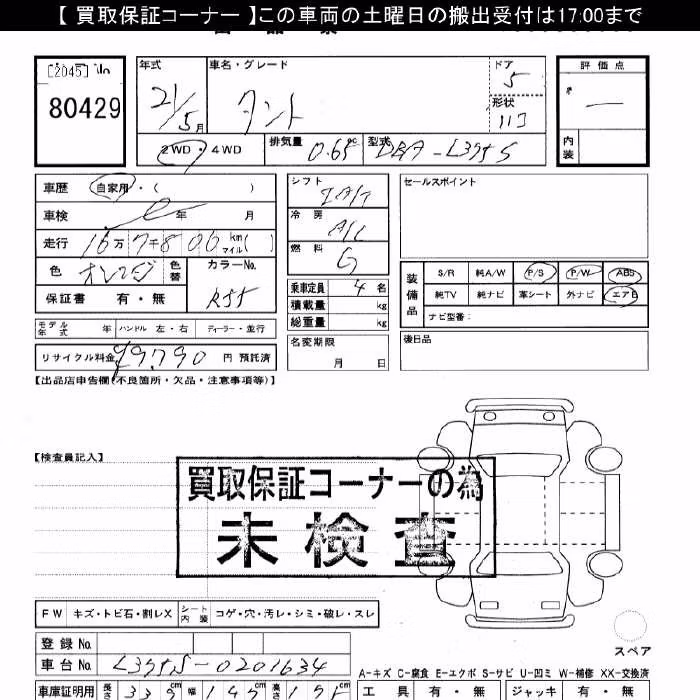 【 買取保証コーナー 】この車両の土曜日の搬出受付は17:00まで
[2045] No
80429
年式 車名・グレード ドア 評価点
21/5月 タント 5
形状
内装
2WD・4WD 排気量 0.65 cc 型式 DBA-L375S
車歴 自家用・( ) シフト IA/T セールスポイント
車検 年 月 冷房 A/C
走行 16万7千806 km マイル ( ) 燃料 G
色 オレンジ 色替 カラーNo. R55 乗車定員 4名
装備品 S/R 純A/W P/S P/W ABS
純TV 純ナビ 革シート 外ナビ エアB
ナビ型番：
保証書 有・無 積載量 kg
総重量 kg
モデル年式 年 ハンドル 左・右 ディーラー・並行 名変期限 月 日 後日品
リサイクル料金 ¥9,790 円 預託済
【出品店申告欄(不良箇所・欠品・注意事項等)】
【検査員記入】
買取保証コーナーの為
未検査
FW キズ・トビ石・割レX シート内装 コゲ・穴・汚レ・シミ・破レ・スレ
スペア
登録 No.
車台 No. L375S-0201634
A-キズ C-腐食 E-エクボ S-サビ U-凹ミ W-補修 XX-交換済
車庫証明用 長さ 339cm 幅 147cm 高さ cm 工具 有・無 ジャッキ 有・無